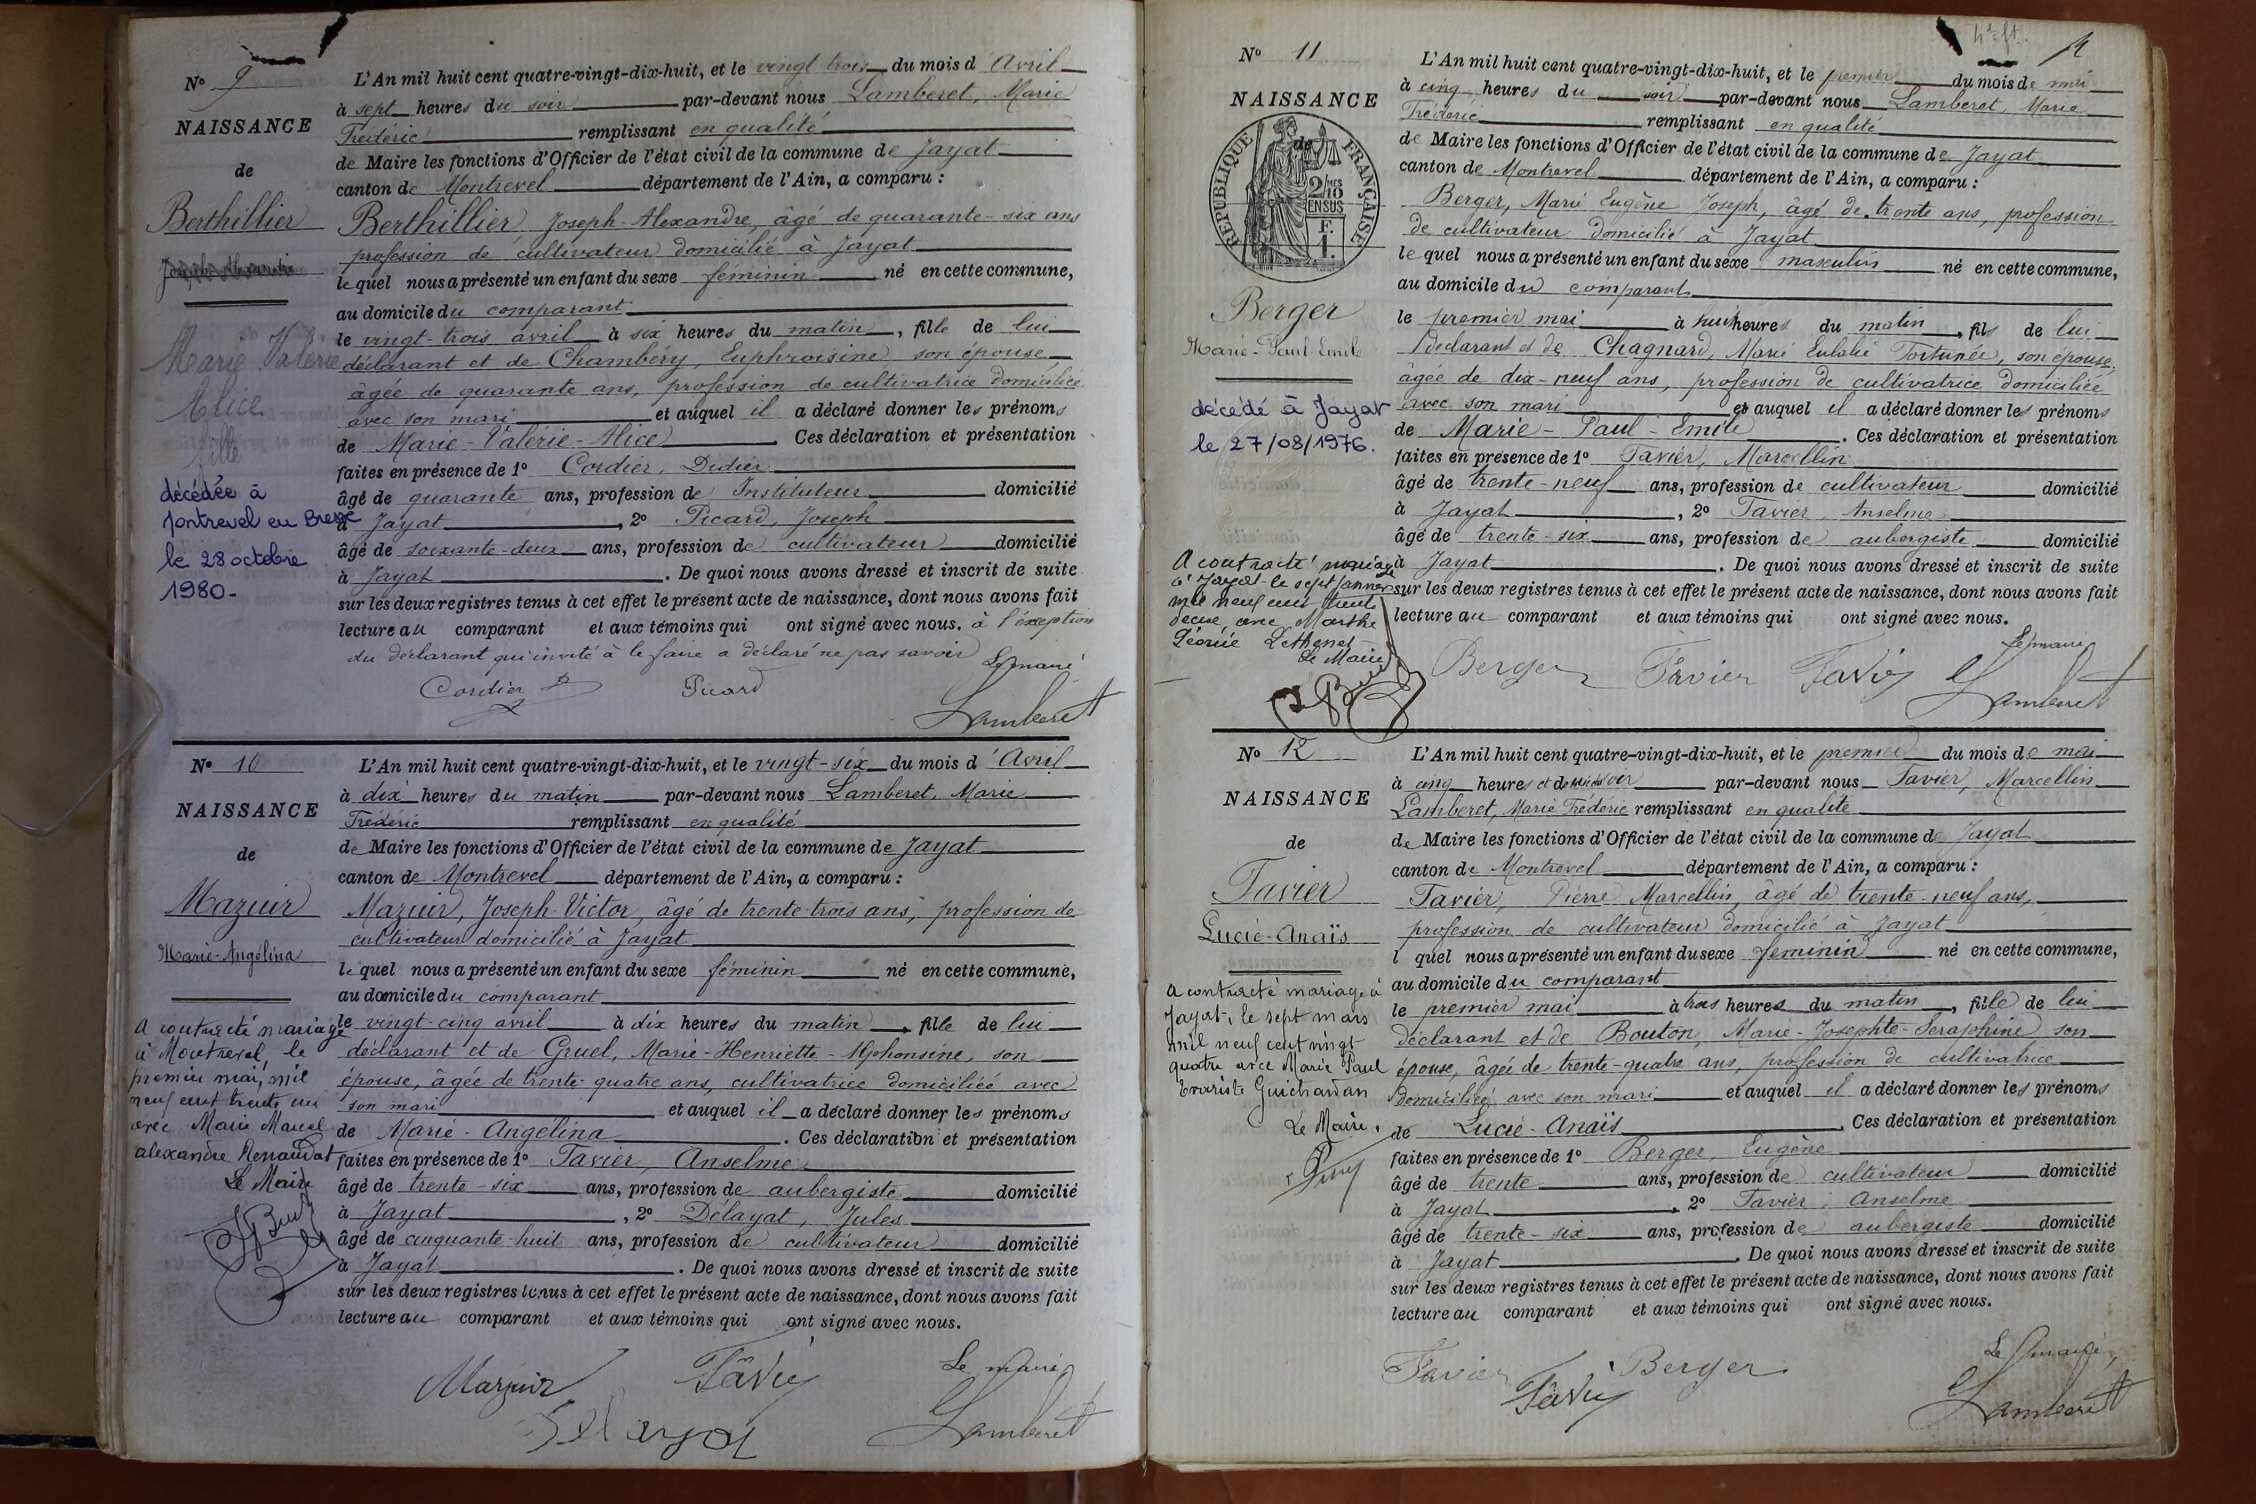 N° 9
NAISSANCE
de
Berthillier
Marie Valérie
Alice
fille
décédée à
Montrevel en Bresse
le 28 octobre
1980-
L'An mil huit cent quatre-vingt-dix-huit, et le vingt trois du mois d'Avril
à sept heures du soir par-devant nous Lamberet, Marie
Frédéric remplissant en qualité
de Maire les fonctions d'Officier de l'état civil de la commune de Jayat
canton de Montrevel département de l'Ain, a comparu :
Berthillier, Joseph-Alexandre, âgé de quarante-six ans
profession de cultivateur domicilié à Jayat
lequel nous a présenté un enfant du sexe féminin né en cette commune,
au domicile du comparant
le vingt-trois avril à six heures du matin, fille de lui
déclarant et de Chambéry, Euphroisine son épouse,
âgée de quarante ans, profession de cultivatrice domiciliée
avec son mari et auquel il a déclaré donner les prénoms
de Marie-Valérie-Alice. Ces déclaration et présentation
faites en présence de 1° Cordier, Didier
âgé de quarante ans, profession de Instituteur domicilié
à Jayat, 2° Picard, Joseph
âgé de soixante-deux ans, profession de cultivateur domicilié
à Jayat. De quoi nous avons dressé et inscrit de suite
sur les deux registres tenus à cet effet le présent acte de naissance, dont nous avons fait
lecture au comparant et aux témoins qui ont signé avec nous. à l'exception
du déclarant qui invité à le faire a déclaré ne pas savoir Le maire
Cordier Picard
Lamberet
N° 10
NAISSANCE
de
Mazuir
Marie-Angélina
A contracté mariage
à Montrevel, le
premier mai, mil
neuf cent trente un
avec Marie Marcel
alexandre Renaudat
Le Maire
L'An mil huit cent quatre-vingt-dix-huit, et le vingt-six du mois d'Avril
à dix heures du matin par-devant nous Lamberet, Marie
Frédéric remplissant en qualité
de Maire les fonctions d'Officier de l'état civil de la commune de Jayat
canton de Montrevel département de l'Ain, a comparu :
Mazuir, Joseph Victor, âgé de trente-trois ans, profession de
cultivateur domicilié à Jayat
lequel nous a présenté un enfant du sexe féminin né en cette commune,
au domicile du comparant
le vingt-cinq avril à dix heures du matin, fille de lui
déclarant et de Gruel, Marie-Henriette-Alphonsine, son
épouse, âgée de trente-quatre ans, cultivatrice domiciliée avec
son mari et auquel il a déclaré donner les prénoms
de Marie-Angélina. Ces déclaration et présentation
faites en présence de 1° Favier, Anselme
âgé de trente-six ans, profession de aubergiste domicilié
à Jayat, 2° Délayat, Jules
âgé de cinquante-huit ans, profession de cultivateur domicilié
à Jayat. De quoi nous avons dressé et inscrit de suite
sur les deux registres tenus à cet effet le présent acte de naissance, dont nous avons fait
lecture au comparant et aux témoins qui ont signé avec nous.
Mazuir Favier Le maire
Delayat Lamberet
N° 11
NAISSANCE
de
REPUBLIQUE FRANÇAISE
2/10 MES
EN SUS
F.
1.
Berger
Marie-Paul-Emile
décédé à Jayat
le 27/08/1976.
A contracté mariage
à Jayat le sept janvier
mil neuf cent trente
deux avec Marthe
Léonie Lethenet
Le Maire
L'An mil huit cent quatre-vingt-dix-huit, et le premier du mois de mai
à cinq heures du soir par-devant nous Lamberet, Marie
Frédéric remplissant en qualité
de Maire les fonctions d'Officier de l'état civil de la commune de Jayat
canton de Montrevel département de l'Ain, a comparu :
Berger, Marie Eugène Joseph, âgé de trente ans, profession
de cultivateur domicilié à Jayat
lequel nous a présenté un enfant du sexe masculin né en cette commune,
au domicile du comparant
le premier mai à huit heures du matin, fils de lui
déclarant et de Chagnard, Marie Eulalie Fortunée, son épouse,
âgée de dix-neuf ans, profession de cultivatrice domiciliée
avec son mari et auquel il a déclaré donner les prénoms
de Marie-Paul-Emile. Ces déclaration et présentation
faites en présence de 1° Favier, Marcellin
âgé de trente-neuf ans, profession de cultivateur domicilié
à Jayat, 2° Favier, Anselme
âgé de trente-six ans, profession de aubergiste domicilié
à Jayat. De quoi nous avons dressé et inscrit de suite
sur les deux registres tenus à cet effet le présent acte de naissance, dont nous avons fait
lecture au comparant et aux témoins qui ont signé avec nous.
Le maire
Berger Favier Favier Lamberet
N° 12
NAISSANCE
de
Favier
Lucie-Anaïs
A contracté mariage à
Jayat, le sept mars
mil neuf cent vingt
quatre avec Marie Paul
Evariste Guichardan
Le Maire.
L'An mil huit cent quatre-vingt-dix-huit, et le premier du mois de mai
à cinq heures et demie du soir par-devant nous Favier, Marcellin
Lamberet, Marie Frédéric remplissant en qualité
de Maire les fonctions d'Officier de l'état civil de la commune de Jayat
canton de Montrevel département de l'Ain, a comparu :
Favier, Pierre Marcellin, âgé de trente-neuf ans,
profession de cultivateur domicilié à Jayat
l quel nous a présenté un enfant du sexe féminin né en cette commune,
au domicile du comparant
le premier mai à trois heures du matin, fille de lui
déclarant et de Bouton, Marie-Josephte-Seraphine son
épouse, âgée de trente-quatre ans, profession de cultivatrice
domiciliée avec son mari et auquel il a déclaré donner les prénoms
de Lucie-Anaïs. Ces déclaration et présentation
faites en présence de 1° Berger, Eugène
âgé de trente ans, profession de cultivateur domicilié
à Jayat, 2° Favier, Anselme
âgé de trente-six ans, profession de aubergiste domicilié
à Jayat. De quoi nous avons dressé et inscrit de suite
sur les deux registres tenus à cet effet le présent acte de naissance, dont nous avons fait
lecture au comparant et aux témoins qui ont signé avec nous.
Le maire,
Favier Berger
Favier Lamberet